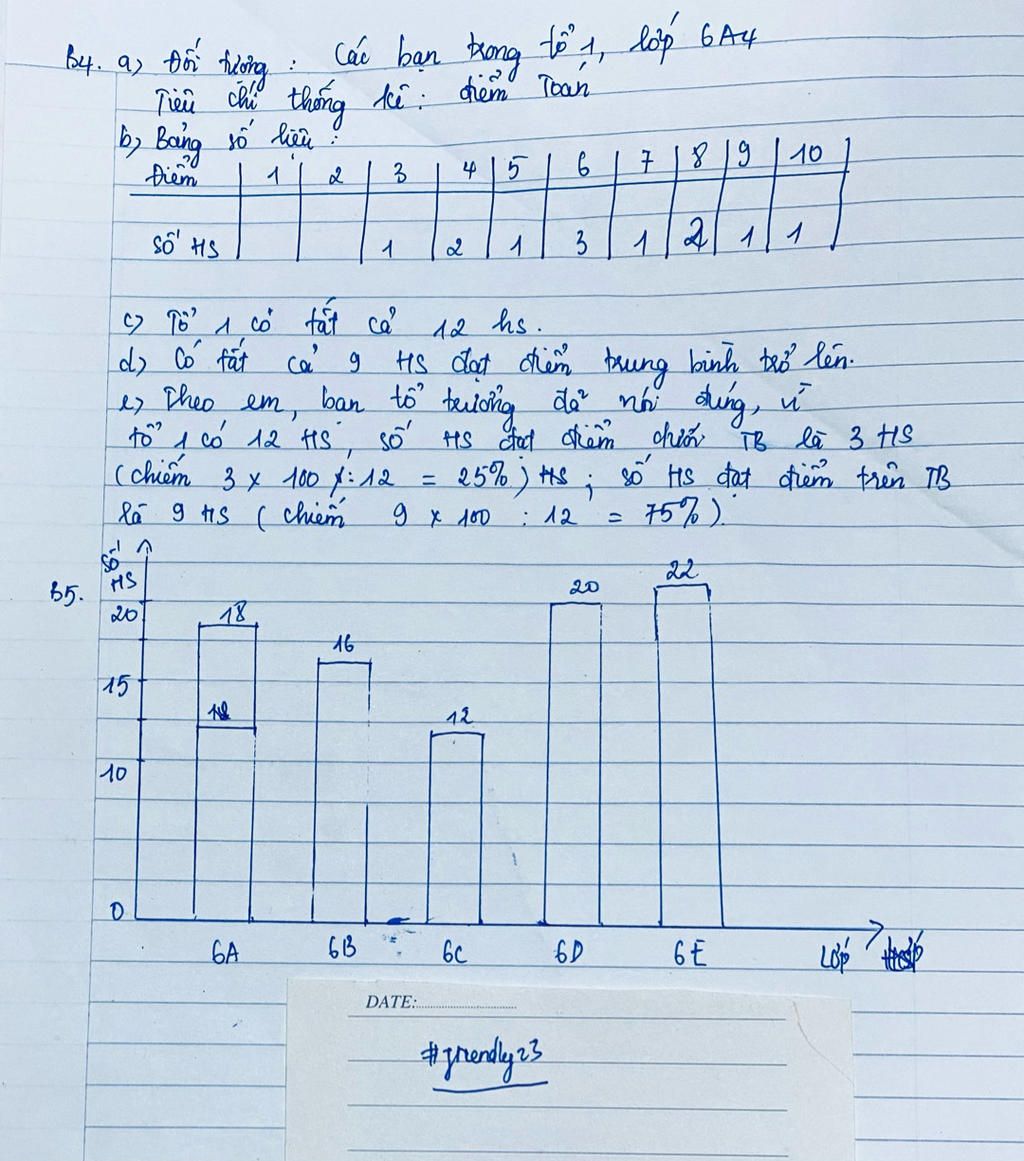 B4. a) Đối tượng : Các bạn trong tổ 1, lớp 6A4
Tiêu chí thống kê : điểm Toán
b) Bảng số liệu :
Điểm 1 2 3 4 5 6 7 8 9 10
Số HS 1 2 1 3 1 2 1 1
c) Tổ 1 có tất cả 12 hs.
d) Có tất cả 9 HS đạt điểm trung bình trở lên.
e) Theo em, bạn tổ trưởng đã nói đúng, vì
tổ 1 có 12 HS, số HS đạt điểm dưới TB là 3 HS
(chiếm 3 x 100 : 12 = 25%) HS ; số HS đạt điểm trên TB
là 9 HS ( chiếm 9 x 100 : 12 = 75%).
B5.
Số HS
20
15
10
0
18
16
12
20
22
6A 6B 6C 6D 6E Lớp
DATE:
#friendly23